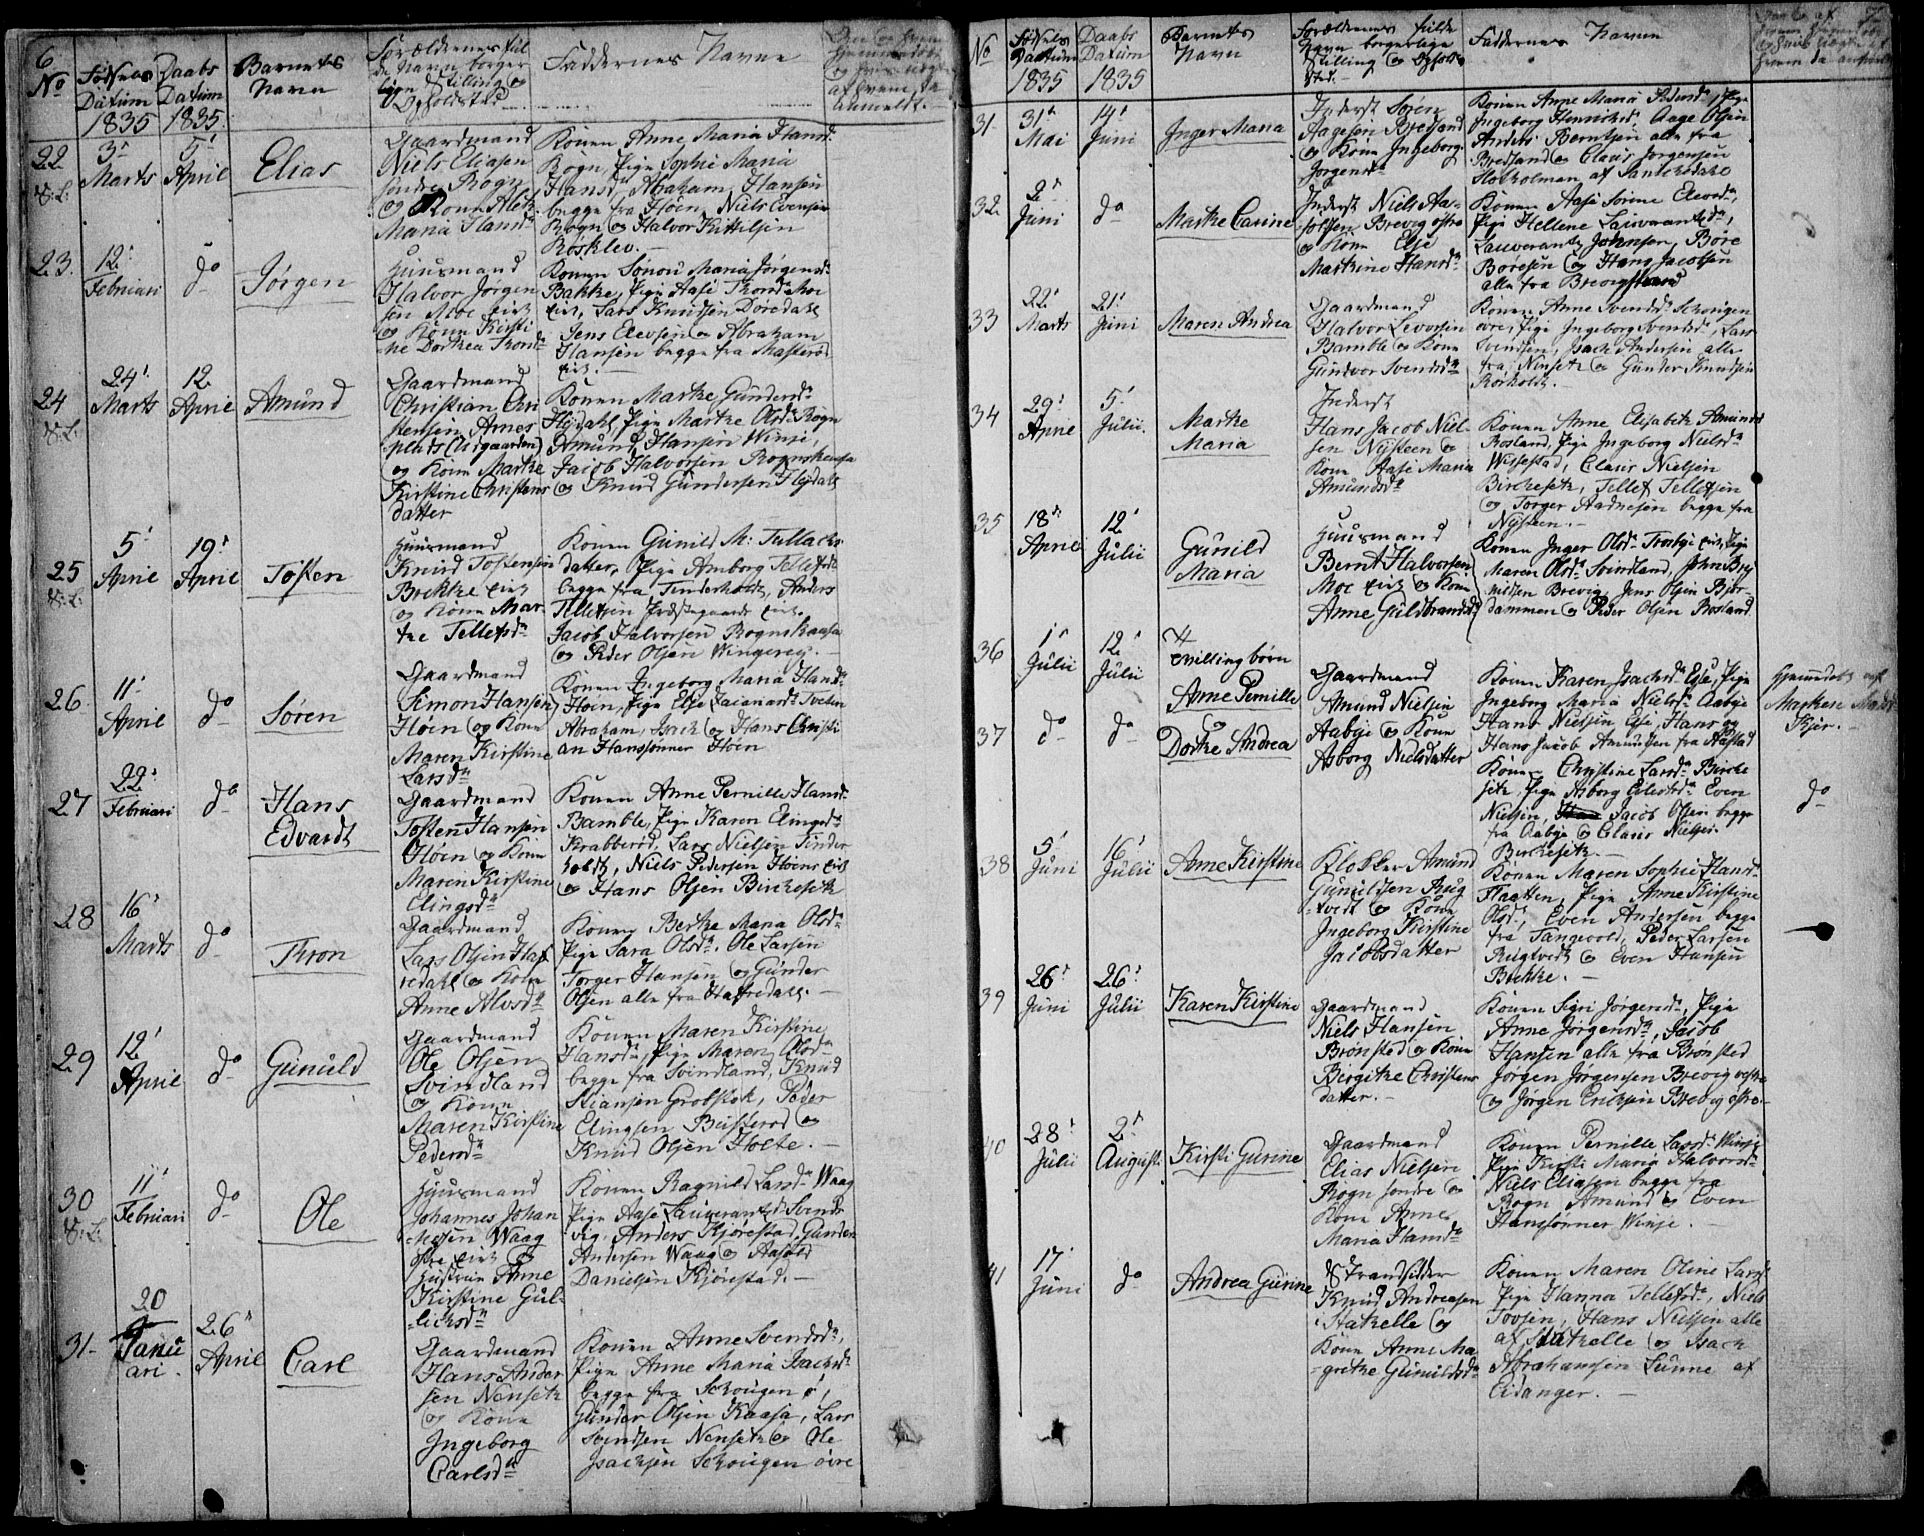 6
No
Fødsels
Datum
1835
Daabs
Datum
1835
Barnets
Navn
Forældrenes ful
de Navn borger
lige Stilling og
Opholdsted
Faddernes Navne
22
3'
Marts
5'
April
Elias
Gaardmand
Niels Eliasen
søndre Rogn
og Kone
Maria Hansd.
Konen Anne Maria Hansd.
Rogn, Pige Sophie Maria
Hansd., Abraham Hansen
begge fra Høen, Niels Evensen
Rogn og Halvor Kittilsen
Røsklev.
23.
12'
Februari
do
Jørgen
Huusmand
Halvor Jørgen
sen Moe eie
og Kone Kirsti
ne Dorthea Thord
Konen Maria Jørgensd.
Bakke, Pige Aase Thordsd. Moe
eie, Lars Knudsen Dørdahl
Jens Elevsen og Abraham
Hansen begge fra Masterød
eie.
24
24'
Marts
12
April
Amund
Gaardmand
Christian Chri
stensen Arnes
plads (Eisgaarden)
og Kone Marthe
Kirstine Christens
datter
Konen Marthe Gundersd.
Høydahl, Pige Marthe Olsd. Rogn
Amund Hansen Winje,
Jacob Halvorsen Rognskaasa
og Knud Gundersen Høydahl
25
5'
April
19'
April
Tosten
Huusmand
Knud Tostensen
Brekke eie
og Kone Mar-
the Tellefsd.
Konen Gunild M: Tullachs
datter, Pige Amborg Tellefsd.
begge fra Tinderholdt, Anders
Tellefsen Præstegaards eie.
Jacob Halvorsen Rognskaasa
og Peder Olsen Wingerei.
26
11'
April
do
Søren
Gaardmand
Simon Hansen
Høen og Kone
Maren Kirstine
Larsd.
Konen Ingeborg Maria Hansd.
Høen, Pige Else Zachariasd. Tveten
Abraham, Isach og Hans Christi
an Hanssønner Høen
27
22'
Februari
do
Hans
Edvardt
Gaardmand
Tosten Hansen
Høen og Kone
Maren Kirstine
Elingsd.
Konen Anne Pernille Hansd.
Bamble, Pige Karen Elingsd.
Krabberød, Lars Nielsen Tinder
holdt, Niels Pedersen Høens eie
og Hans Olsen Birkeseth
28
16'
Marts
do
Thron
Gaardmand
Lars Olsen Haf
redahl og Kone
Anne Alvsd.
Konen Berthe Maria Olsd.
Pige Sara Olsd. Ole Larsen
Torger Hansen og Gunder
Olsen alle fra Hafredahl.
29
12'
April
do
Gunuld
Gaardmand
Ole Olsen
Svindland
og Kone
Maren Kirstine
Pedersd.
Konen Maren Kirstine
Hansd., Pige Maren Olsd.
begge fra Svindland, Knud
Stiansen Grobstok, Peder
Elingsen Bustered og
Knud Olsen Holte.
30
11'
Februari
do
Ole
Huusmand
Johannes Johan
nesen Waag
østre eie og
Hustrue Anne
Kirstine Gul-
lichsd.
Konen Ragnild Larsd. Waag
Pige Aase Lauverantsd. Svends
vig, Anders Kjørestad, Gunder
Andersen Waag og Aasold
Danielsen Kjørestad.
31-
20
Janu
ari.
26'
April
Carl
Gaardmand
Hans Ander
sen Nenseth
og Kone
Ingeborg
Carlsd.
Konen Anne Svendsd.,
Pige Anne Maria Isachsd.
begge fra Schougen ø,
Gunder Olsen Kaasa, Lars
Svendsen Nenseth og Ole
Isachsen Schougen øvre
No
Fødsels
Datum
1835
Daabs
Datum
1835
Barnets
Navn
Forældrenes fulde
Navn borgerlige
Stilling og Ophold-
sted.
Faddernes Navne
31
31'
Mai
14'
Juni
Inger Maria
Inderst Søren
Aagesen Bredsand
og Kone Ingeborg
Jørgensd.
Konen Anne Maria Pedersd., Pige
Ingeborg Henrichsd., Aage Olsen
Anders Berntsen alle fra
Bredsand og Claus Jørgensen
Flotholmen af Sannikedahl
32.
2'
Juni
do
Marthe Carine
Inderst Niels Aa-
solsen Brevig østre
og Kone Else
Marthine Hansd.
Konen Aase Sørine Elevsd.,
Pige Hellene Lauverantsd.,
Lauverants Johnsen, Børe
Børesen og Hans Jacobsen
alle fra Brevigstrand
33
22'
Marts
21'
Juni
Maren Andrea
Gaardmand
Halvor Levorsen
Bamble og Kone
Gundvor Svendsd.
Konen Anne Svendsd. Schougen
øvre, Pige Ingeborg Svendsd., Lars
Svendsen, Isach Andersen alle
fra Nenseth og Gunder Knudsen
Rørholdt.
34
29'
5'
Julii.
Marthe
Maria
Inderst
Hans Jacob Niel-
sen Nysteen og
Kone Aase Maria
Amundsd.
Konen Anne Elisabeth Amundsd.
Rosland, Pige Ingeborg Nielsd.
Wissestad, Claus Nielsen
Birkeseth, Tellef Tellefsen
og Torger Aadnesen begge fra
Nysteen.
35
18'
April
12'
Julii
Gunild
Maria
Huusmand
Bernt Halvorsen
Moe eie og Kone
Anne Guldbrandsd.
Konen Inger Olsd. Trosbye eie, Pige
Maren Olsd. Svindland, John Bry
nildsen Brevig, Jens Olsen Bjør-
dammen og Peder Olsen Rosland
36
1'
Julii
12'
Julii
Tvillingbørn
Anne Pernille
og
37
do
do
Dorthe Andrea
Gaardmand
Amund Nielsen
Aabye og Kone
Asborg Nielsdatter
Konen Karen Isachsd. Ese, Pige
Ingeborg Maria Nielsd. Aabye
Hans Nielsen Ese, Hans og
Hans Jacob Amundsen fra Aafstad
Konen Christine Larsd. Birke
seth, Pige Asborg Evensd. Even
Nielsen, Jacob Olsen begge
fra Aabye og Claus Nielsen
Birkeseth.
Kjær.
do
38
5'
Juni
16'
Julii
Anne Kirstine
Klokker Amund
Gunuldsen Rug
tvedt og Kone
Ingeborg Kirstine
Jacobsdatter
Konen Maren Sophie Hansd.
Flaatten, Pige Anne Kirstine
Olsd., Even Andersen begge
fra Tangevold, Peder Larsen
Rugtvedt og Even Hansen
Bekke.
39
26'
Juni
26'
Julii
Karen Kirstine
Gaardmand
Niels Hansen
Brønsted og Kone
Birgithe Christens
datter.
Konen Sigri Jørgensd., Pige
Anne Jørgensd., Jacob
Hansen alle fra Brønsted
Jørgen Jørgensen Brevig vestre
og Jørgen Eriksen Brevig østre
40
28'
Julii
2'
Augusti
Kirsti Gurine
Gaardmand
Elias Nielsen
Rogn søndre og
Kone Anne
Maria Hansd.
Konen Pernille Larsd. Winje
Pige Kirsti Maria Halvorsd.
Niels Eliasen begge fra
Rogn Amund og Even
Hanssønner Winje.
41
17'
Juni
do
Andrea Gurine
Strandsidder
Knud Andreasen
Stathelle og
Kone Anne Ma
grethe Gunuldsd.
Konen Maren Oline Larsd.
Pige Hanna Tellefsd., Niels
Tovsen, Hans Nielsen alle
af Stathelle og Isach
Abrahamsen Lunne af
Eidanger.